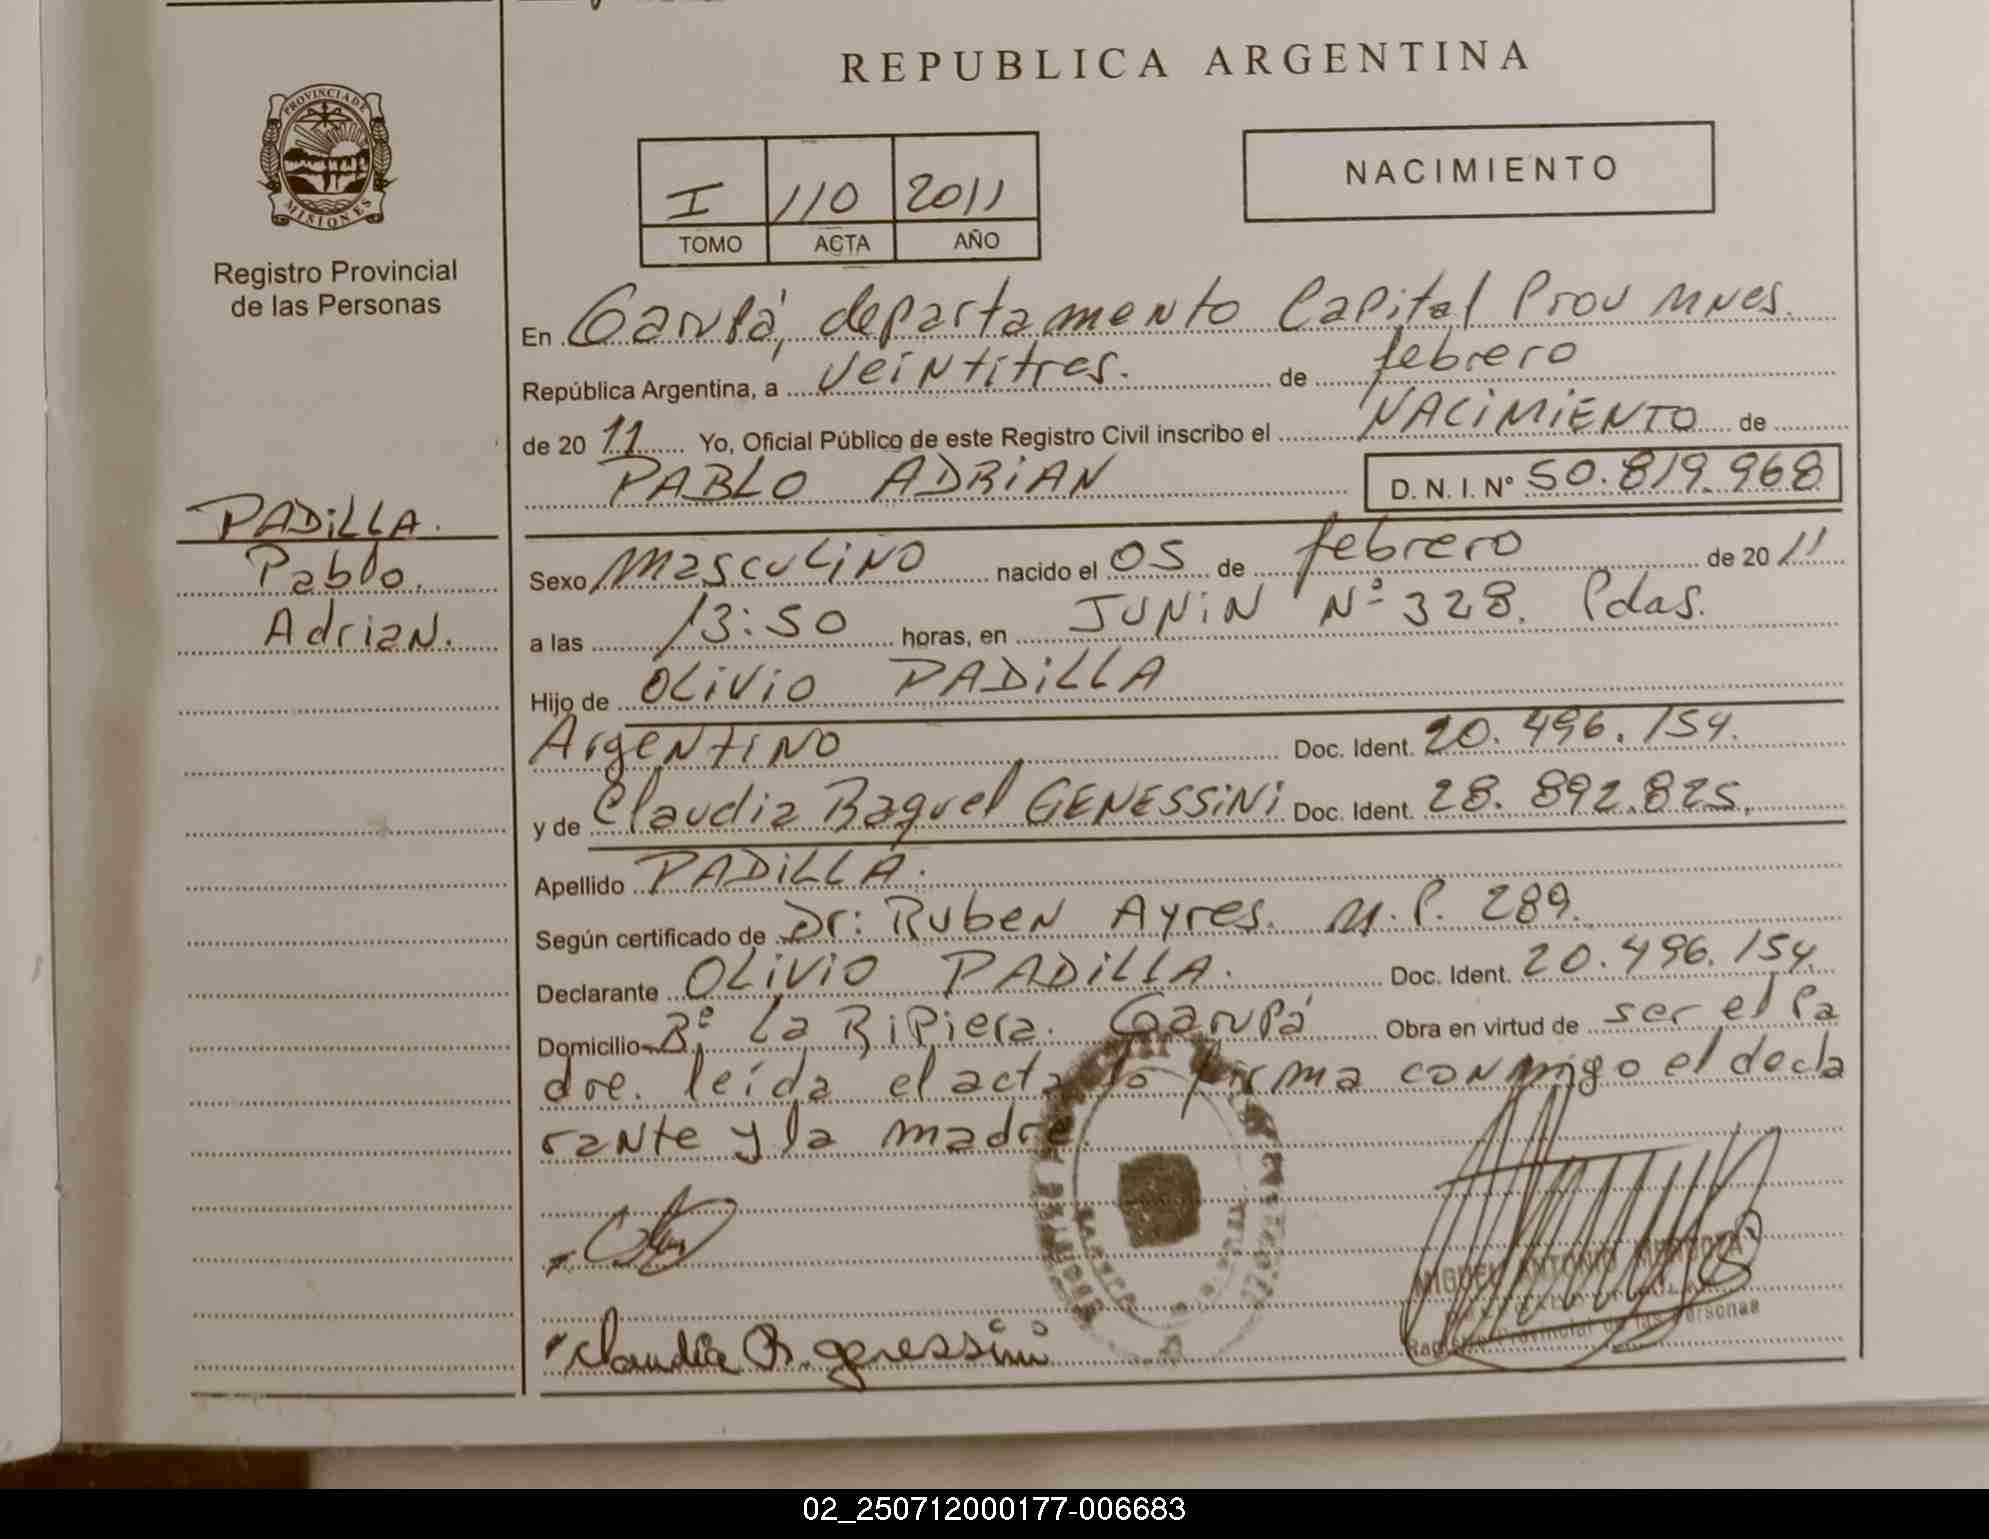 REPUBLICA ARGENTINA
PROVINCIA DE
MISIONES
Registro Provincial
de las Personas
I 110 2011
TOMO ACTA AÑO
NACIMIENTO
En Garupá, departamento Capital Prov Mnes.
República Argentina, a veintitres. de febrero
de 20 11 Yo, Oficial Público de este Registro Civil inscribo el NACIMIENTO de
PABLO ADRIAN D. N. I. N° 50.819.968
PADILLA.
Pablo.
Adrian.
Sexo Masculino nacido el 05 de febrero de 20 11
a las 13:50 horas, en JUNIN N° 328. Pdas.
Hijo de OLIVIO PADILLA
Argentino Doc. Ident. 20.496.154.
y de Claudia Raquel GENESSINI Doc. Ident. 28.892.825.
Apellido PADILLA.
Según certificado de Dr: Ruben Ayres. M.P. 289.
Declarante OLIVIO PADILLA. Doc. Ident. 20.496.154
Domicilio B° La Ripiera. Garupá Obra en virtud de ser el Pa
dre. leída el acta la firma conmigo el decla
rante y la madre.
Claudia R. genessini
MIGUEL ANTONIO MENDOZA
Registro Provincial de las Personas
02_250712000177-006683